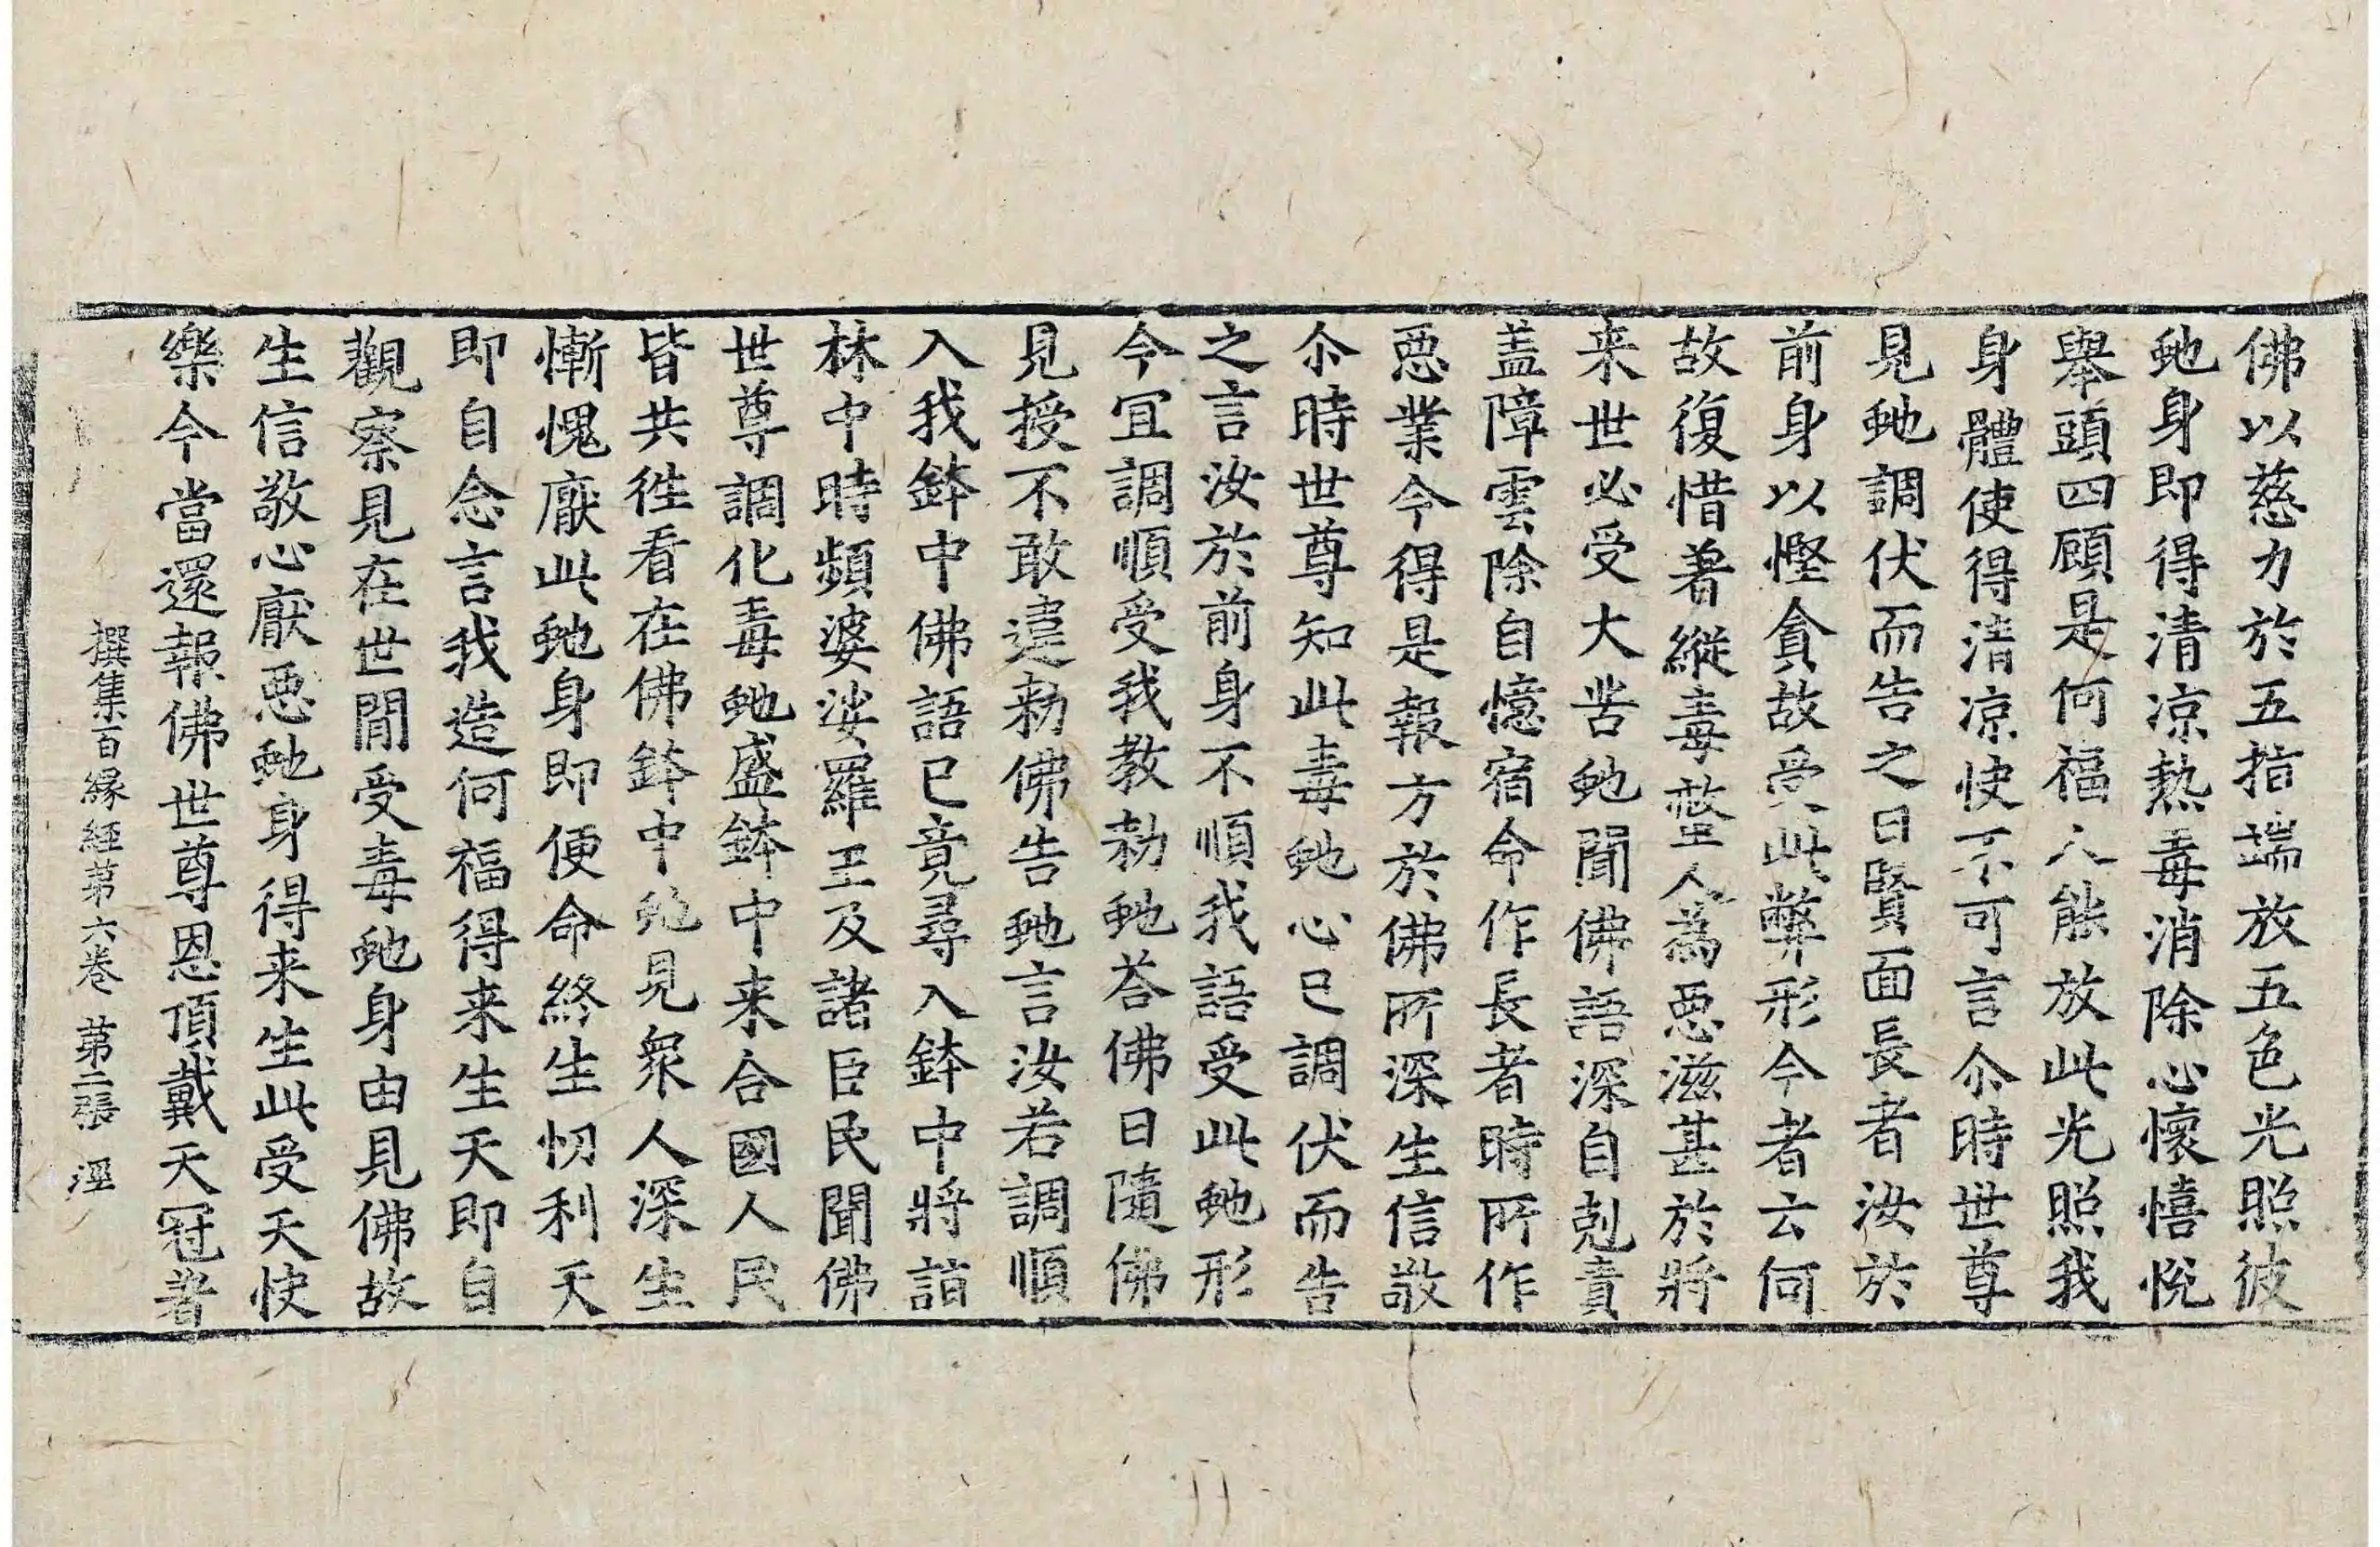 佛以慈力於五指端放五色光照彼
虵身即得清凉熱毒消除心懷憘悅
舉頭四顧是何福人能放此光照我
身體使得清凉快不可言尒時世尊
見虵調伏而告之曰賢面長者汝於
前身以慳貪故受此弊形今者云何
故復惜著縱毒螫人為惡滋甚於將
来世必受大苦虵聞佛語深自剋責
盖障雲除自憶宿命作長者時所作
惡業今得是報方於佛所深生信敬
尒時世尊知此毒虵心已調伏而告
之言汝於前身不順我語受此虵形
今宜調順受我教勑虵荅佛曰隨佛
見授不敢違勑佛告虵言汝若調順
入我鉢中佛語已竟尋入鉢中將詣
林中時頻婆娑羅王及諸臣民聞佛
世尊調化毒虵盛鉢中来合國人民
皆共徃看在佛鉢中虵見衆人深生
慚愧厭此虵身即便命終生忉利天
即自念言我造何福得来生天即自
觀察見在世間受毒虵身由見佛故
生信敬心厭惡虵身得来生此受天快
樂今當還報佛世尊恩頂戴天冠著
撰集百緣經第六卷 第二張 涇